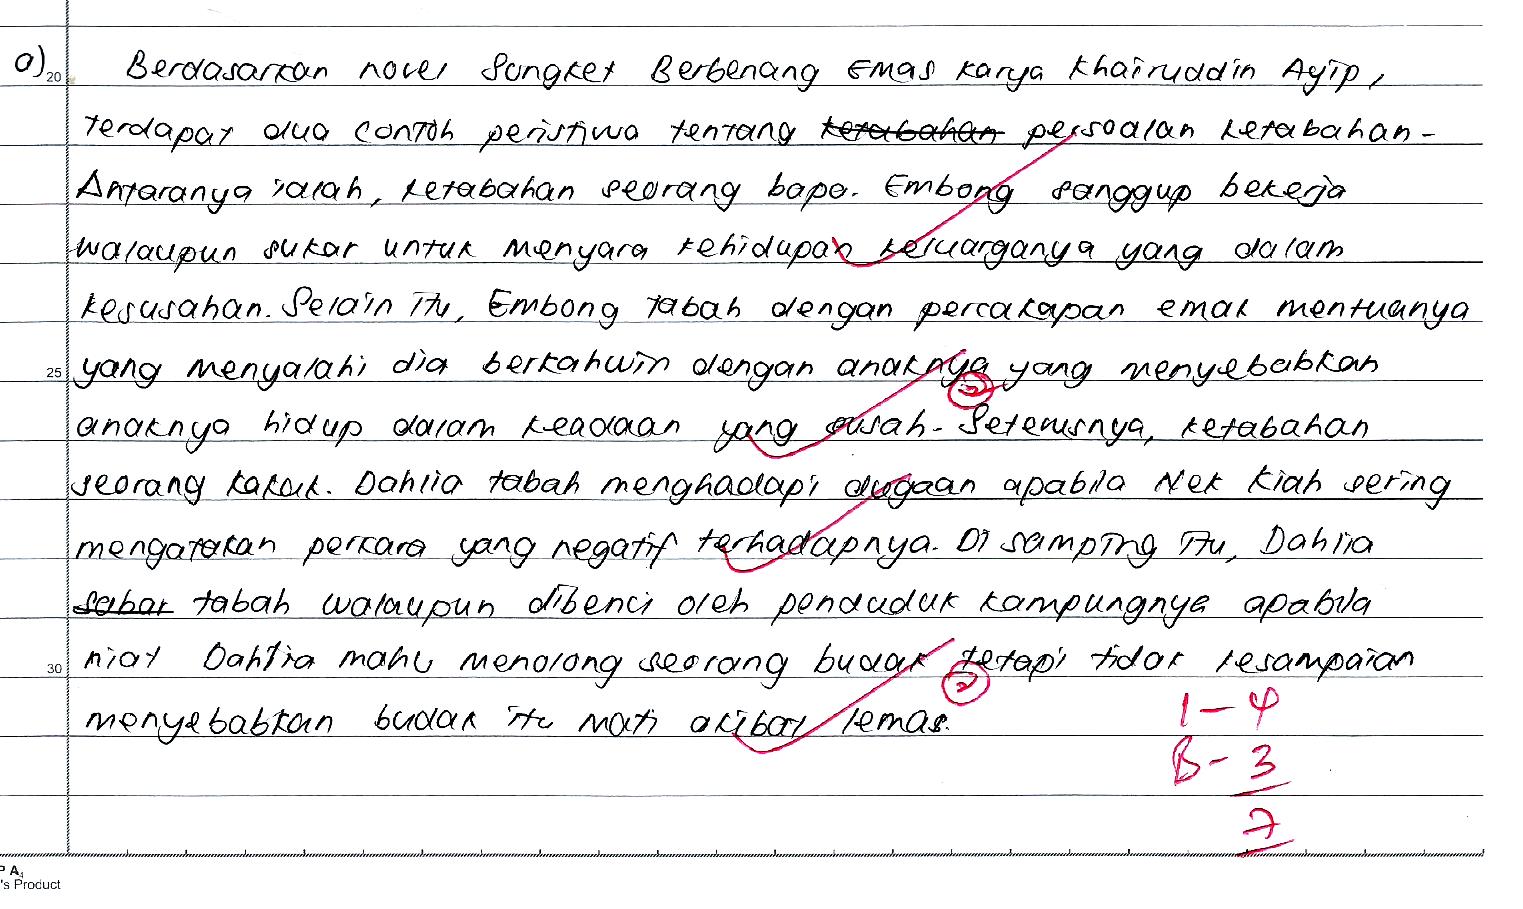 a) 20 Berdasarkan novel Songket Berbenang Emas karya Khairuddin Ayip,
terdapat dua contoh peristiwa tentang ketabahan persoalan ketabahan.
Antaranya ialah, ketabahan seorang bapa. Embong sanggup bekerja
walaupun sukar untuk menyara kehidupan keluarganya yang dalam
kesusahan. Selain itu, Embong tabah dengan percakapan emak mentuanya
25 yang menyalahi dia berkahwin dengan anaknya yang menyebabkan
2
anaknya hidup dalam keadaan yang susah. Seterusnya, ketabahan
seorang kakak. Dahlia tabah menghadapi dugaan apabila Nek Kiah sering
mengatakan perkara yang negatif terhadapnya. Di samping itu, Dahlia
sabar tabah walaupun dibenci oleh penduduk kampungnya apabila
30 niat Dahlia mahu menolong seorang budak tetapi tidak kesampaian
2
menyebabkan budak itu mati akibat lemas.
1 - 4
B - 3
7
P A4
's Product